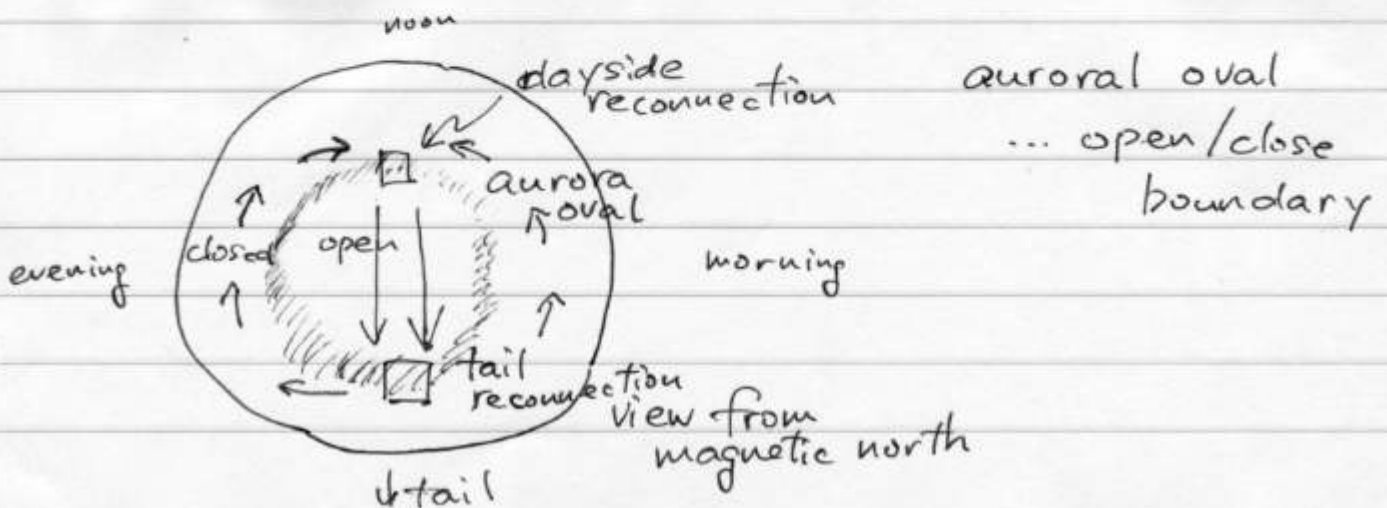 noon
dayside
reconnection
auroral oval
... open/close
boundary
aurora
oval
closed
open
evening
morning
tail
reconnection
view from
magnetic north
tail